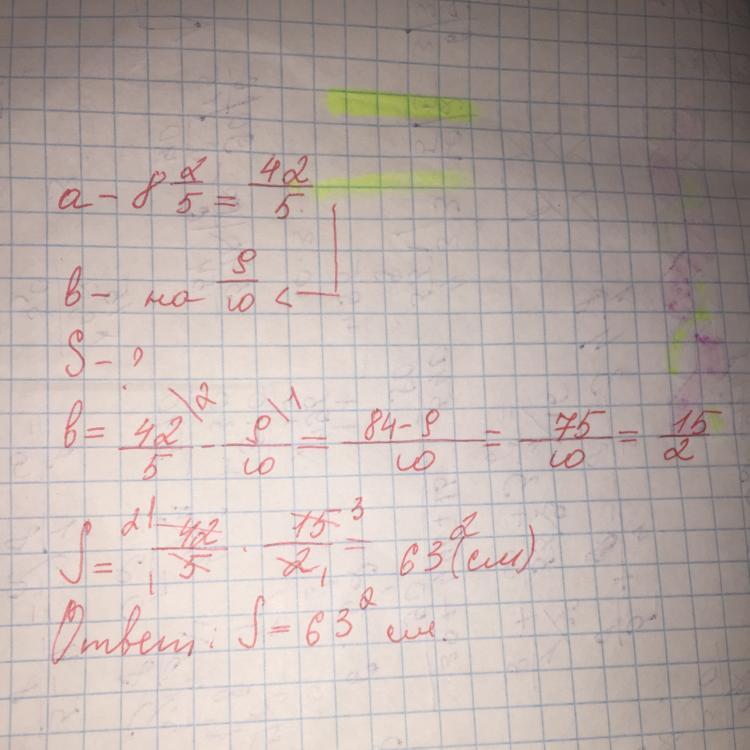 a - 8 2/5 = 42/5
в - на 9/10 <
S - ?
в = 42\2/5 - 9\1/10 = 84-9/10 = 75/10 = 15/2
S = 21 42/5 1 · 15 3/2 1 = 63 2(см)
Ответ: S = 63 2 см.